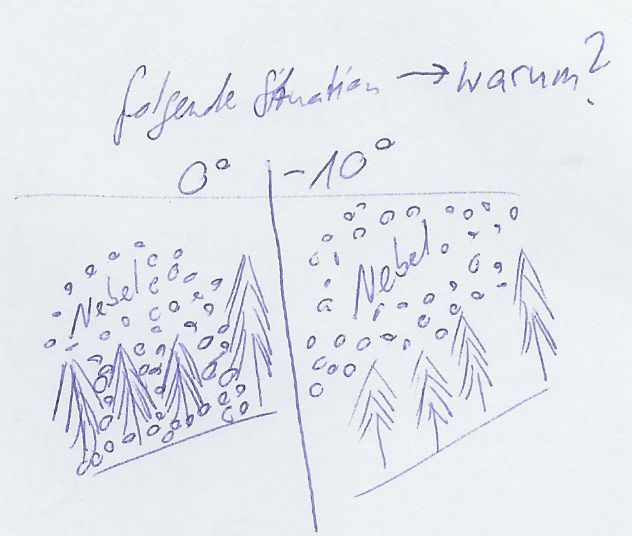 folgende Situation → warum?
0° -10°
Nebel Nebel